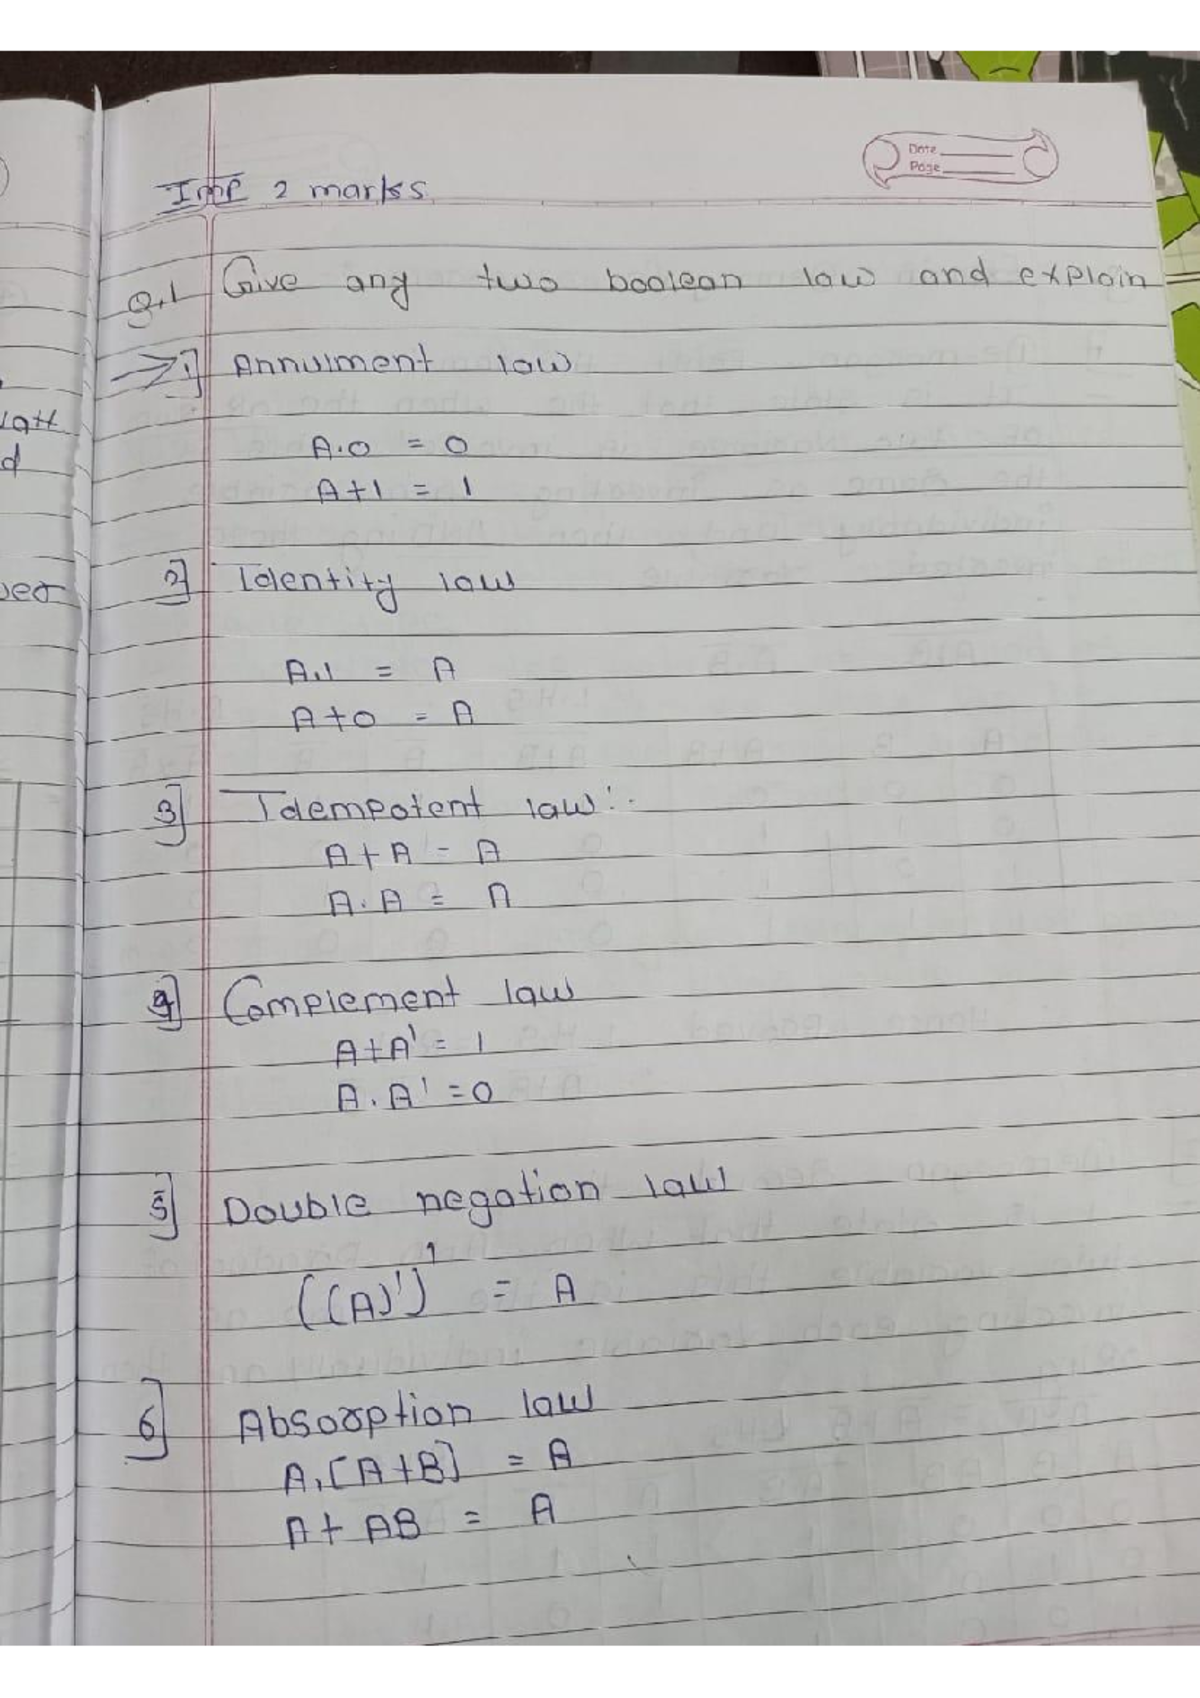 Date
Page
Imp 2 marks
Q.1 Give any two boolean law and explain
→ 1] Annulment law
A.0 = 0
A+1 = 1
2] Identity law
A.1 = A
A+0 = A
3] Idempotent law:-
A+A = A
A.A = A
4] Complement law
A+A' = 1
A.A' = 0
5] Double negation law
((A)')' = A
6] Absorption law
A.[A+B] = A
A+AB = A